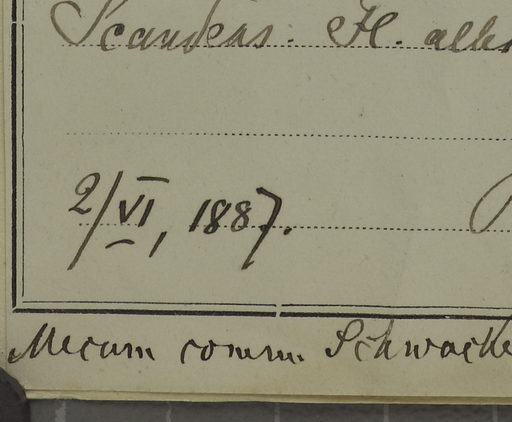 Scandens. Fl. albi
2/VI, 1887.
Mecum comm. Schwacke